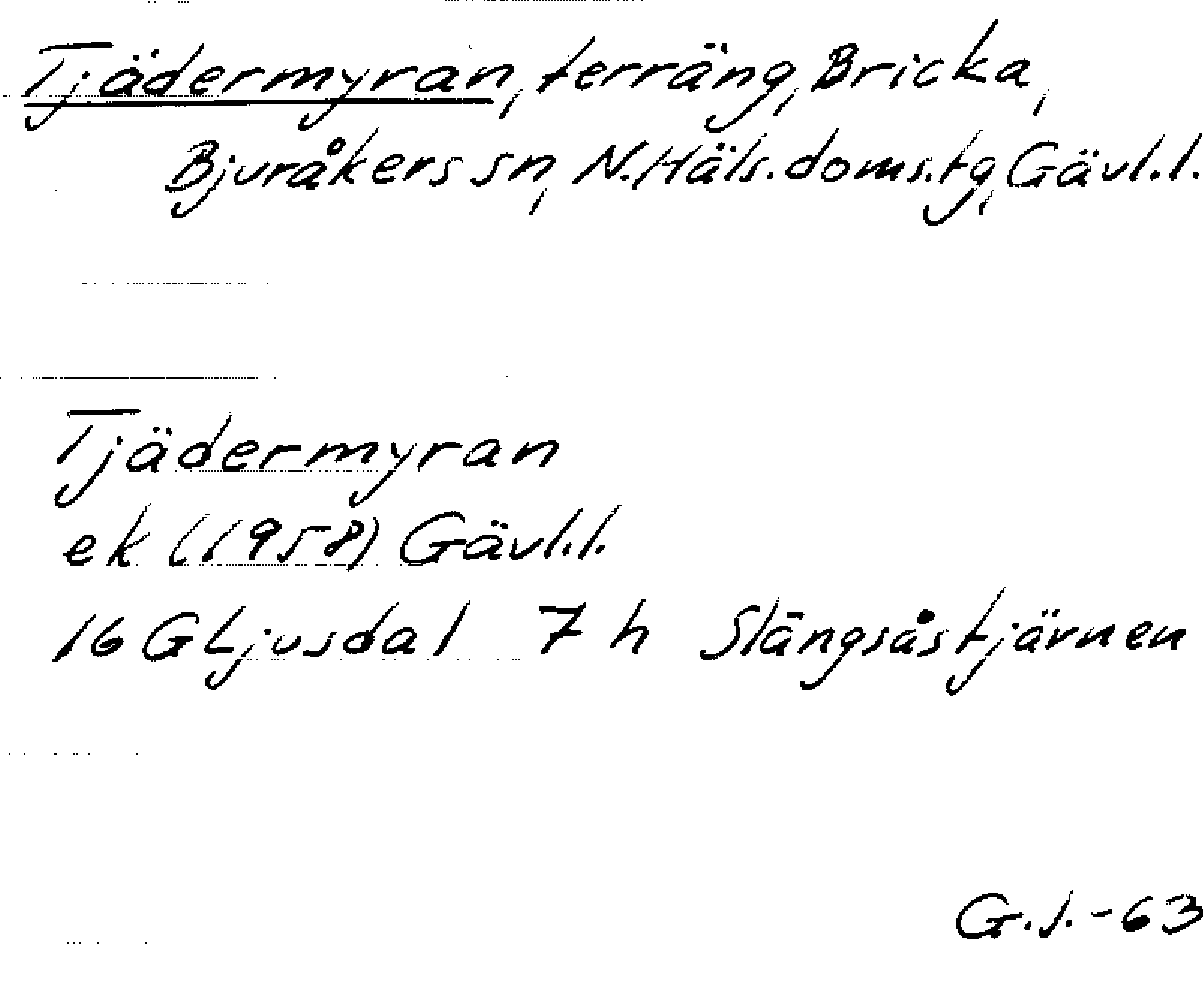 Tjädermyran, terräng, Bricka,
Bjuråkers sn, N. Häls. doms.tg, Gävl.l.
Tjädermyran
ek (1958) Gävl.l.
16 G Ljusdal 7 h Slängsåstjärnen
G.J.-63